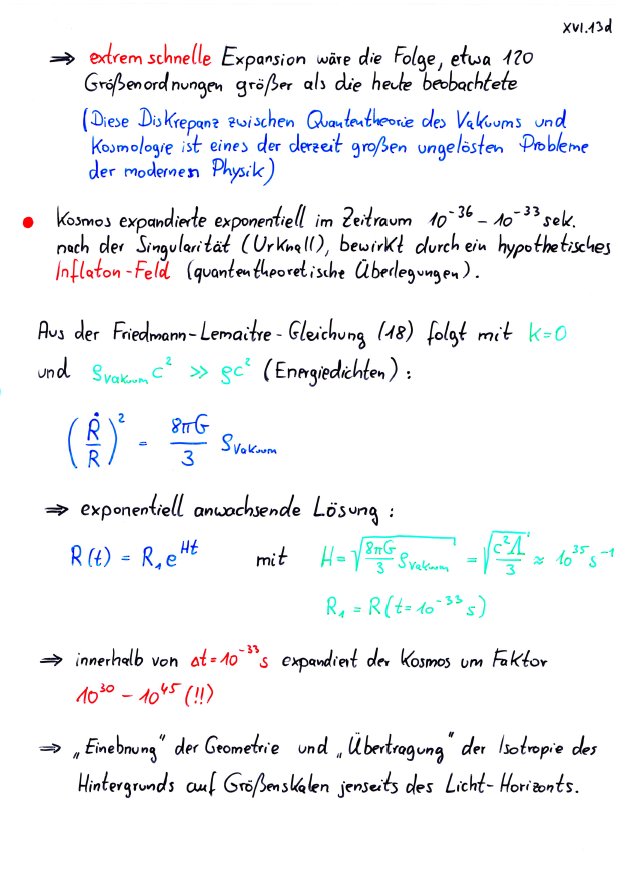 XVI.13d
⇒ extrem schnelle Expansion wäre die Folge, etwa 120
Größenordnungen größer als die heute beobachtete
(Diese Diskrepanz zwischen Quantentheorie des Vakuums und
Kosmologie ist eines der derzeit großen ungelösten Probleme
der modernen Physik)
• Kosmos expandierte exponentiell im Zeitraum 10⁻³⁶ – 10⁻³³ sek.
nach der Singularität (Urknall), bewirkt durch ein hypothetisches
Inflaton-Feld (quantentheoretische Überlegungen).
Aus der Friedmann-Lemaitre-Gleichung (18) folgt mit k=0
und ρ_Vakuum c² >> ρc² (Energiedichten):
(Ṙ/R)² = 8πG/3 ρ_Vakuum
⇒ exponentiell anwachsende Lösung:
R(t) = R₁ e^{Ht} mit H = √(8πG/3 ρ_Vakuum) = √(c²Λ/3) ≈ 10³⁵ s⁻¹
R₁ = R(t=10⁻³³ s)
⇒ innerhalb von Δt=10⁻³³ s expandiert der Kosmos um Faktor
10³⁰ – 10⁴⁵ (!!)
⇒ „Einebnung" der Geometrie und „Übertragung" der Isotropie des
Hintergrunds auf Größenskalen jenseits des Licht-Horizonts.